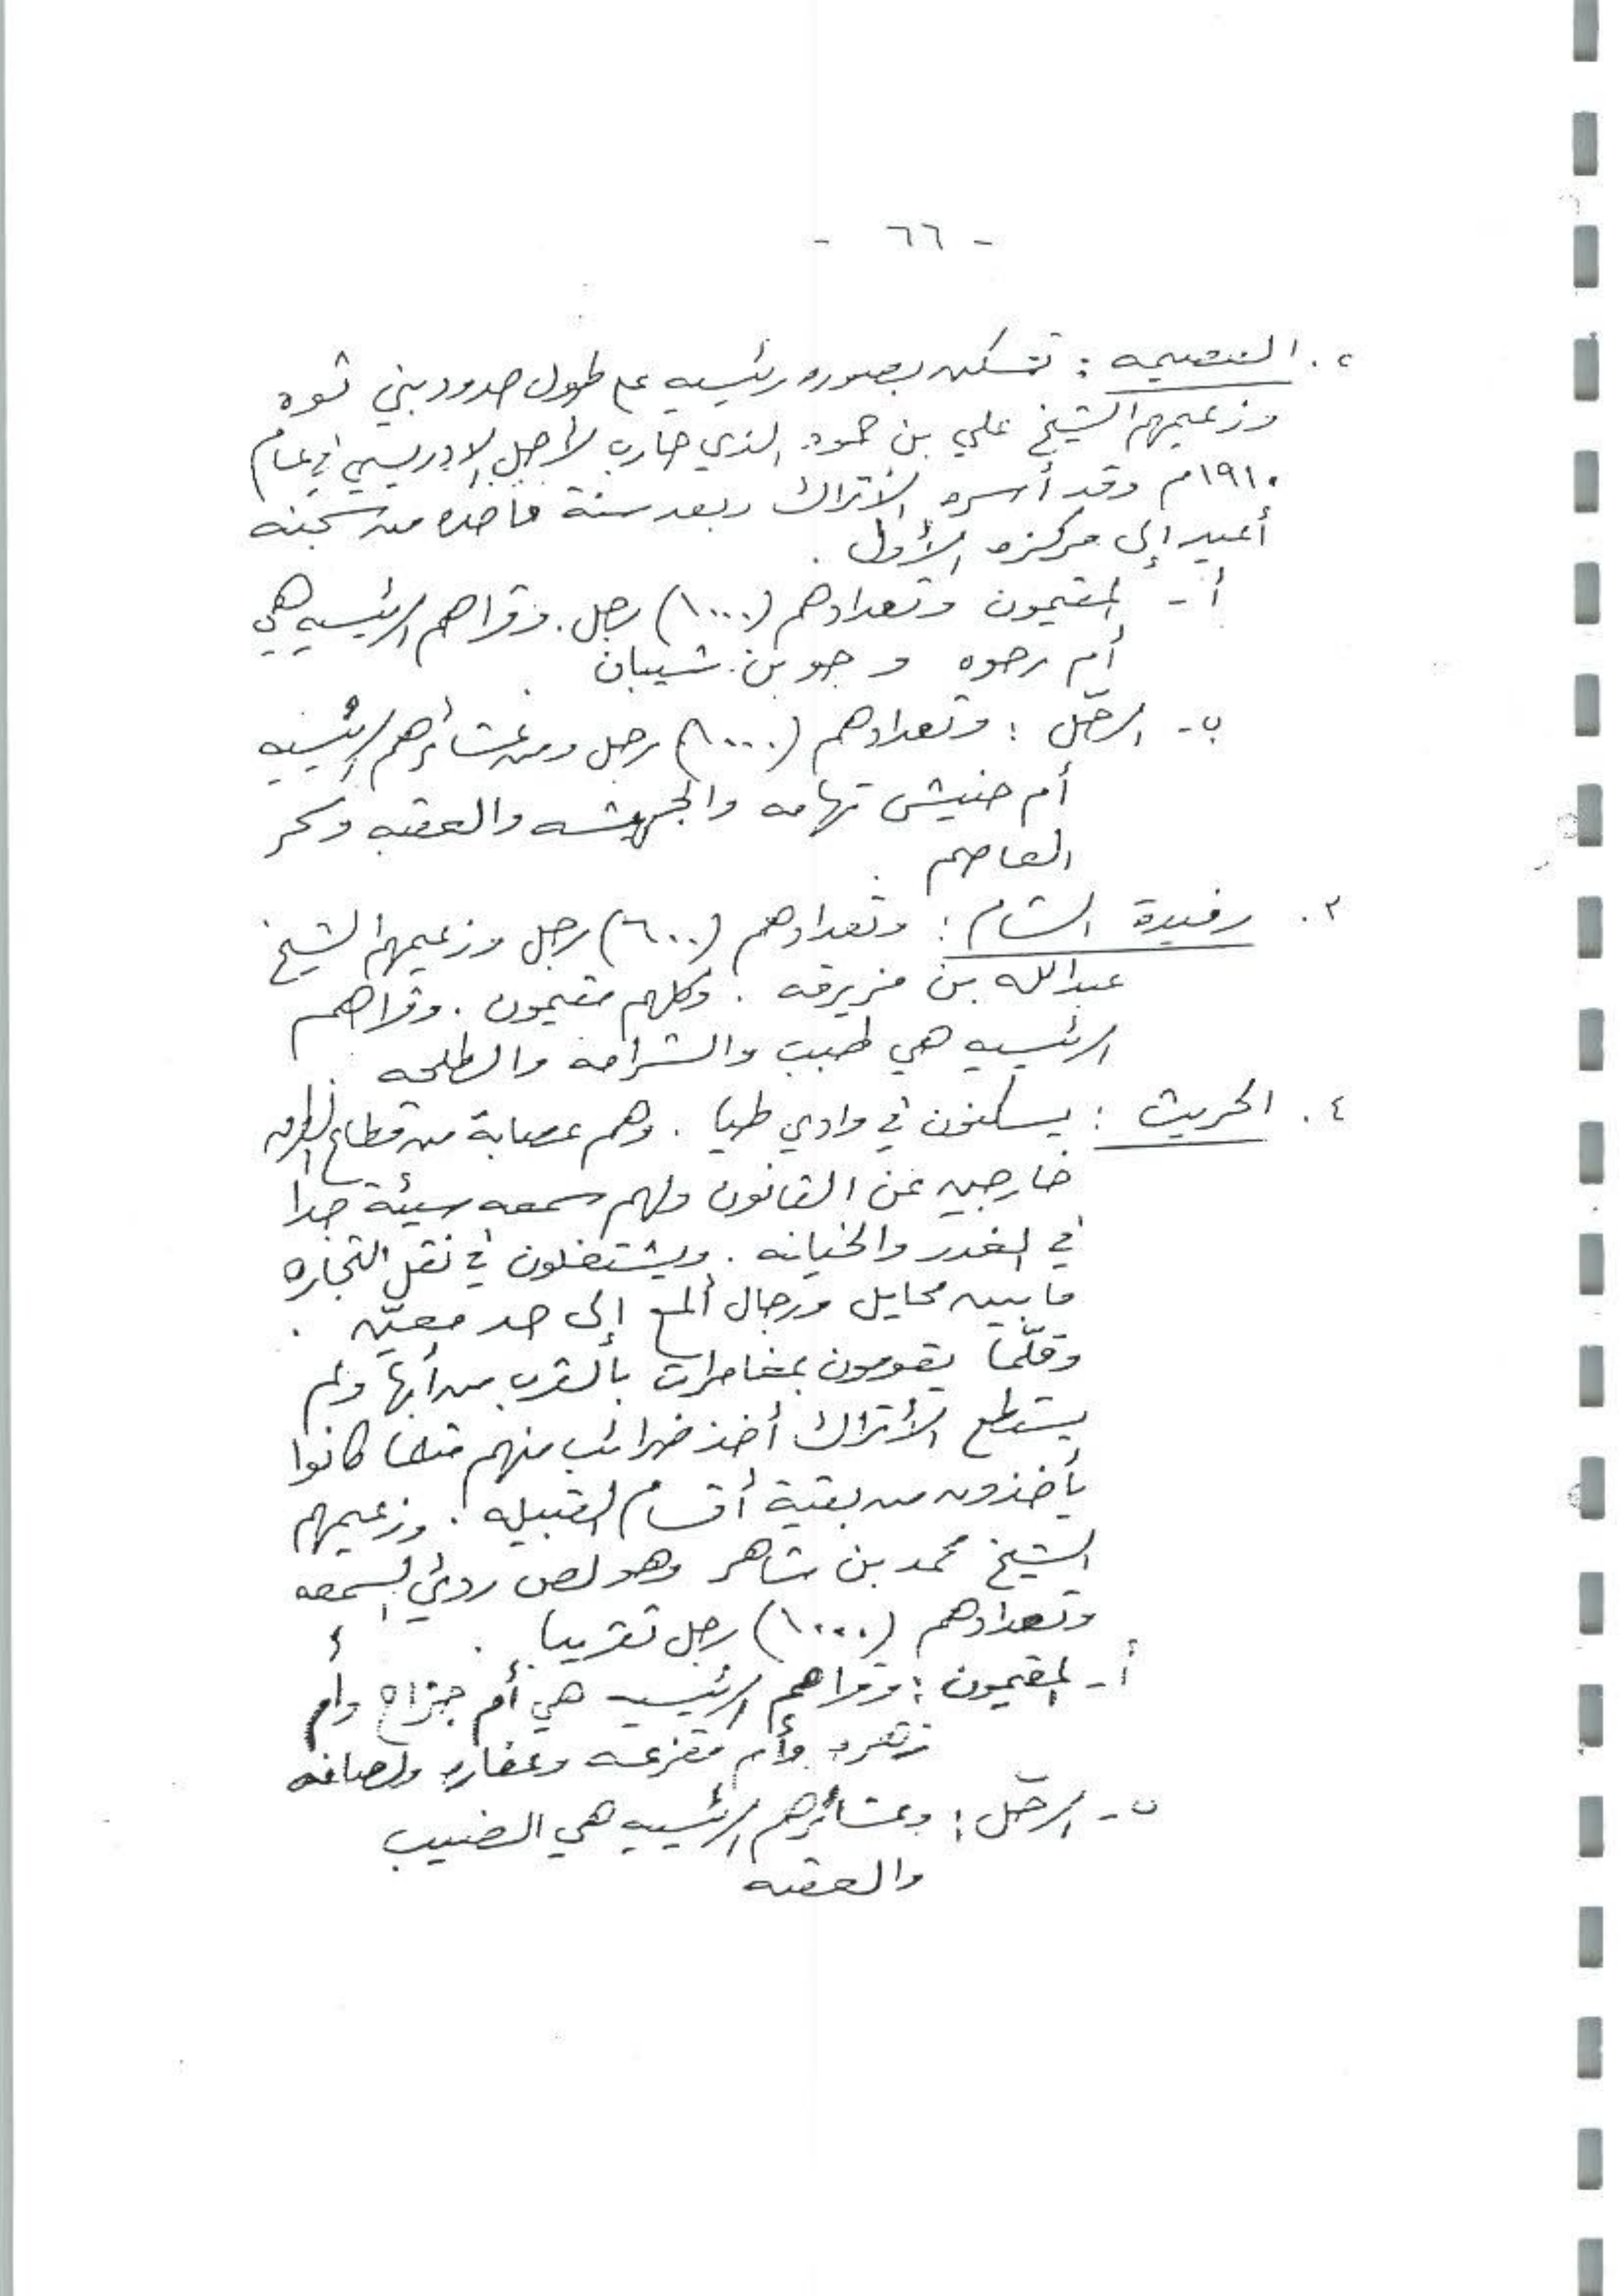 - ٦٦ -
٢. النعصيمه : تسكن بصوره رئيسيه على طول حدود بني ثوه
وزعيمهم الشيخ علي بن حمود الذي حارب لأجل الادريسي في عام
١٩١٠م وقد أسره الأتراك وبعد سنة واحده من سجنه
أعيد إلى مركزه الأول .
أ- المقيمون وتعدادهم (١٠٠٠) رجل . وقراهم الرئيسيه هي
أم رحوه و جو بن شيبان
ب- الرحّل : وتعدادهم (١٠٠٠) رجل ومن عشائرهم الرئيسيه
أم حنيش تهامه والجهشه والعقبه وسحر
العاصم .
٣. رفيدة الشام : وتعدادهم (٦٠٠) رجل وزعيمهم الشيخ
عبدالله بن مزيرقه . وكلهم مقيمون . وقراهم
الرئيسيه هي طبب والشرامه والطلحه
٤. الحريث : يسكنون في وادي طيا . وهم عصابة من قطاع الطرق
خارجين عن القانون ولهم سمعه سيئة جدا
في الغدر والخيانه . ويشتغلون في نقل التجاره
ما بين محايل ورجال ألمع إلى حد معيّن .
وقلّما يقومون بمغامرات بالقرب من أبها ولم
يستطع الأتراك أخذ ضرائب منهم مثلما كانوا
يأخذون من بقية أقسام القبيله . وزعيمهم
الشيخ محمد بن شاهر وهو لص رديئ السمعه
وتعدادهم (١٠٠٠) رجل تقريبا .
أ- المقيمون : وقراهم الرئيسيه هي أم جزاع وأم
زهره وأم مقزعه وعفاره ولصافه
ب- الرحّل : وعشائرهم الرئيسيه هي الضبيب
والعقبه